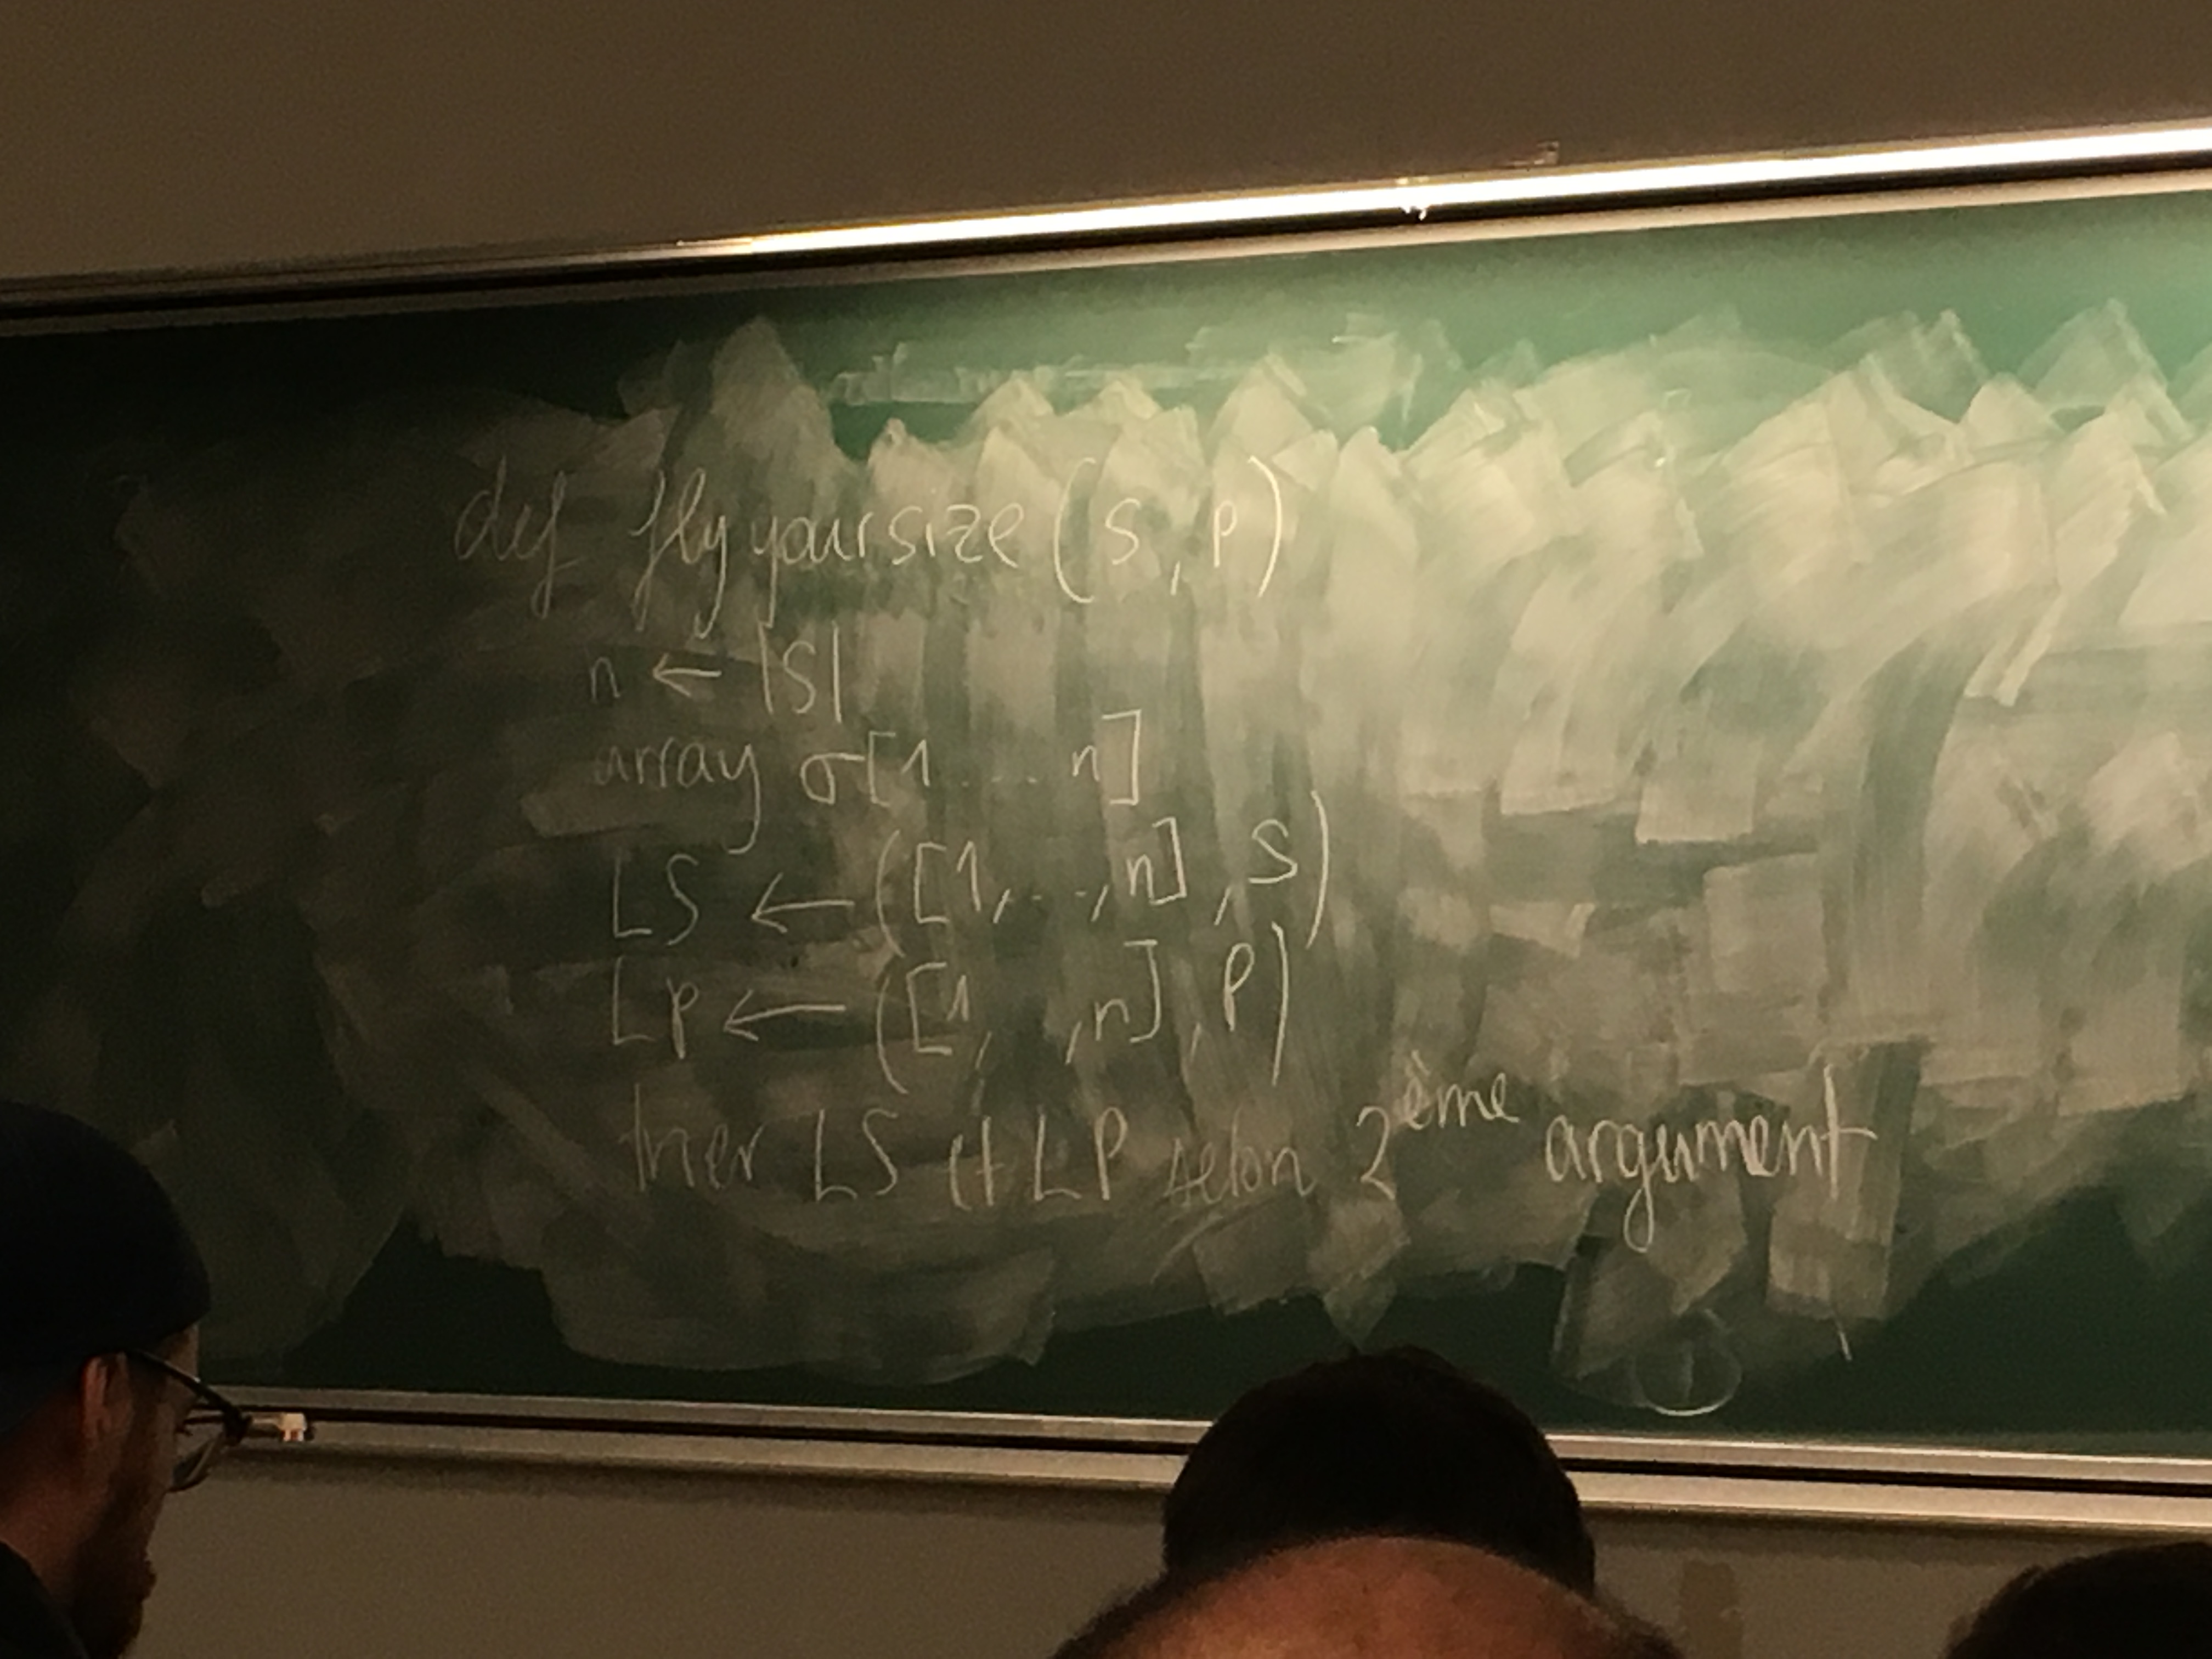 def flyyoursize (S, P)
n ← |S|
array σ[1 ... n]
LS ← ([1,...,n], S)
LP ← ([1, ,n], P)
trier LS et LP selon 2ème argument